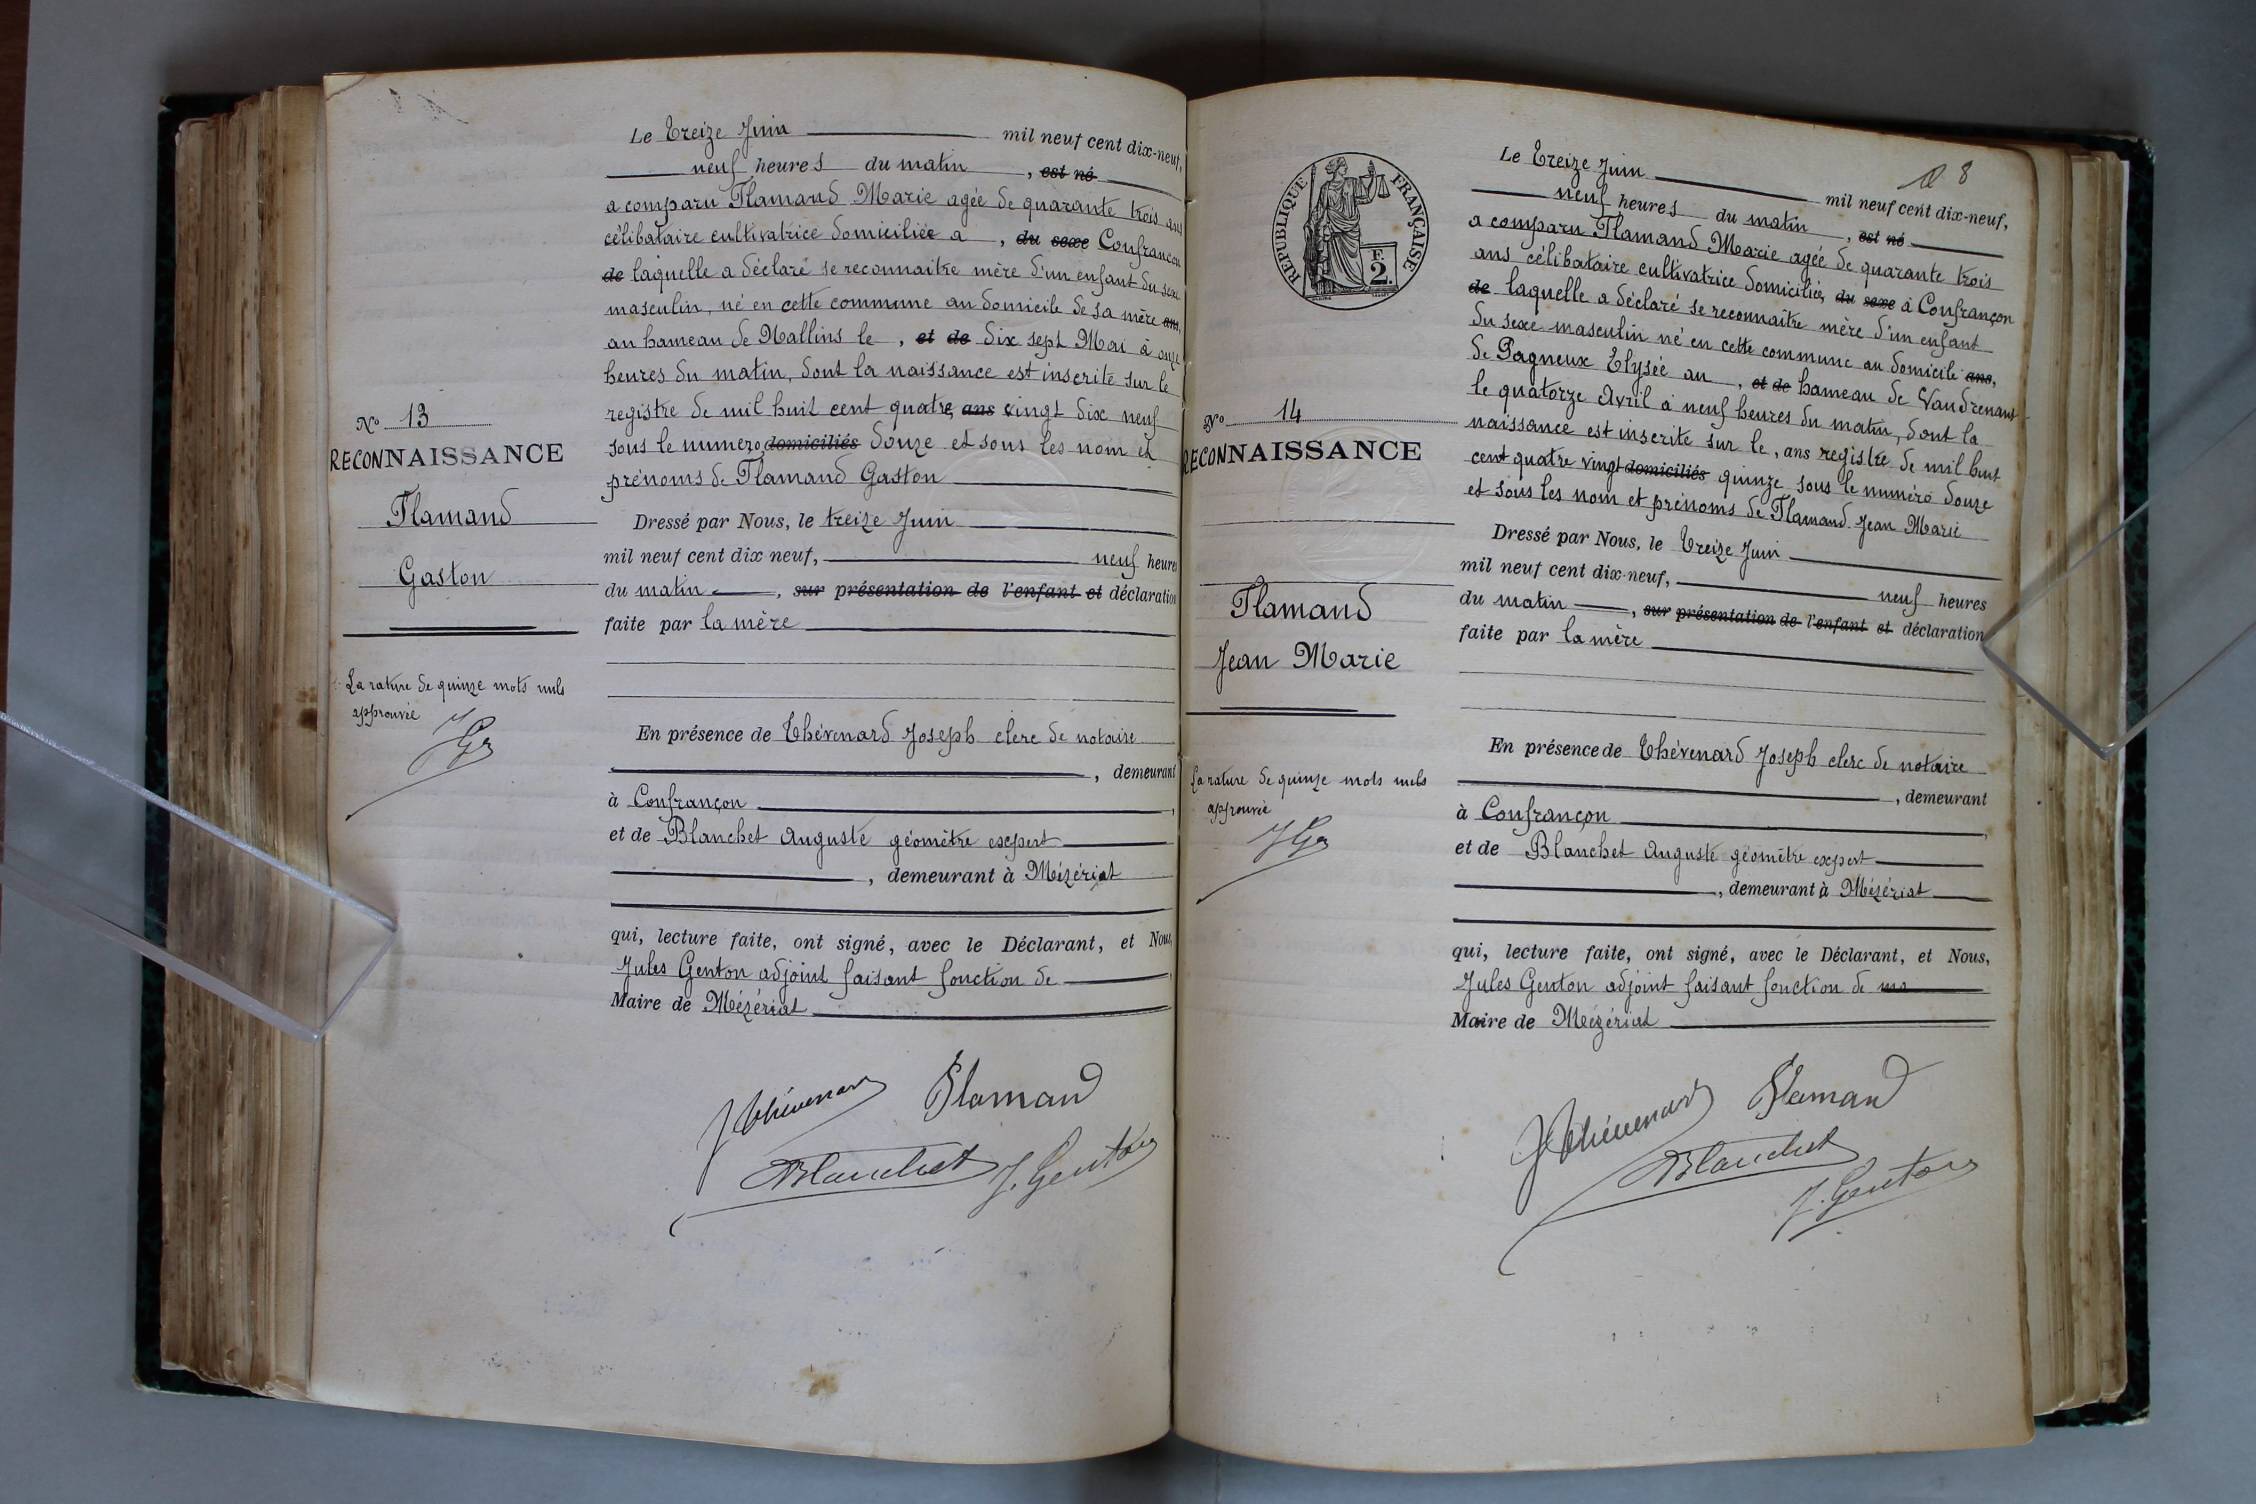 Le treize Juin mil neuf cent dix-neuf,
neuf heures du matin, est né
a comparu Flamand Marie agée de quarante trois ans
célibataire cultivatrice domiciliée a, du sexe Confrançon
de laquelle a déclaré se reconnaitre mère d'un enfant du sexe
masculin, né en cette commune au domicile de sa mère ans,
au hameau de Mallins le, et de dix sept Mai à onze
heures du matin, dont la naissance est inscrite sur le
registre de mil huit cent quatre ans vingt dix neuf
sous le numero, domiciliés douze et sous les nom et
prénoms de Flamand Gaston
No 13
RECONNAISSANCE
Flamand
Gaston
La rature de quinze mots nuls
approuvée
JG
Dressé par Nous, le treize Juin
mil neuf cent dix neuf, neuf heures
du matin, sur présentation de l'enfant et déclaration
faite par la mère
En présence de Thévenard Joseph clerc de notaire
, demeurant
à Confrançon,
et de Blanchet Auguste géomètre expert
, demeurant à Mézériat
qui, lecture faite, ont signé, avec le Déclarant, et Nous,
Jules Genton adjoint faisant fonction de
Maire de Mézériat
J Thévenard Flamand
Blanchet J. Genton
8
RÉPUBLIQUE FRANÇAISE
F.
2.
Le treize Juin mil neuf cent dix-neuf,
neuf heures du matin, est né
a comparu Flamand Marie agée de quarante trois
ans célibataire cultivatrice domiciliée, du sexe à Confrançon
de laquelle a déclaré se reconnaître mère d'un enfant
du sexe masculin né en cette commune au domicile ans,
de Pagneux Elysée au, et de hameau de Vaudrenans
le quatorze Avril à neuf heures du matin, dont la
naissance est inscrite sur le, ans registre de mil huit
cent quatre vingt domiciliés quinze sous le numéro douze
et sous les nom et prénoms de Flamand Jean Marie
No 14
RECONNAISSANCE
Flamand
Jean Marie
La rature de quinze mots nuls
approuvée
JG
Dressé par Nous, le treize Juin
mil neuf cent dix-neuf, neuf heures
du matin, sur présentation de l'enfant et déclaration
faite par la mère
En présence de Thévenard Joseph clerc de notaire
, demeurant
à Confrançon,
et de Blanchet Auguste géomètre expert
, demeurant à Mézériat
qui, lecture faite, ont signé, avec le Déclarant, et Nous,
Jules Genton adjoint faisant fonction de ma
Maire de Mézériat
J Thévenard Flamand
Blanchet
J. Genton